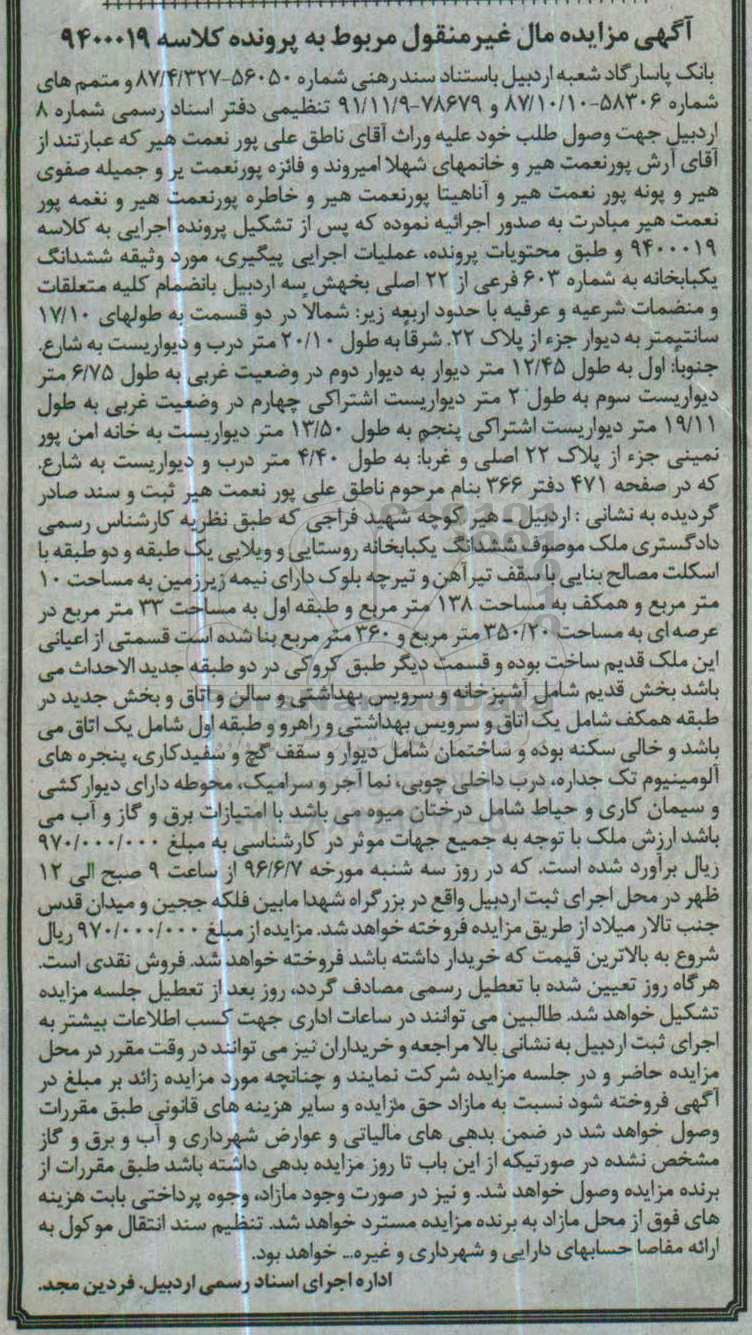 آگهی مزایده مال غیرمنقول مربوط به پرونده کلاسه ۹۴۰۰۰۱۹
بانک پاسارگاد شعبه اردبیل باستناد سند رهنی شماره ۵۶۰۵۰-۸۷/۴/۳۲۷ و متمم های
شماره ۵۸۳۰۶-۸۷/۱۰/۱۰ و ۷۸۶۷۹-۹۱/۱۱/۹ تنظیمی دفتر اسناد رسمی شماره ۸
اردبیل جهت وصول طلب خود علیه وراث آقای ناطق علی پور نعمت هیر که عبارتند از
آقای آرش پورنعمت هیر و خانمهای شهلا امیروند و فائزه پورنعمت یر و جمیله صفوی
هیر و پونه پور نعمت هیر و آناهیتا پورنعمت هیر و خاطره پورنعمت هیر و نغمه پور
نعمت هیر مبادرت به صدور اجرائیه نموده که پس از تشکیل پرونده اجرایی به کلاسه
۹۴۰۰۰۱۹ و طبق محتویات پرونده، عملیات اجرایی پیگیری، مورد وثیقه ششدانگ
یکبابخانه به شماره ۶۰۳ فرعی از ۲۲ اصلی بخهش سه اردبیل بانضمام کلیه متعلقات
و منضمات شرعیه و عرفیه با حدود اربعه زیر: شمالاً در دو قسمت به طولهای ۱۷/۱۰
سانتیمتر به دیوار جزء از پلاک ۲۲. شرقاً به طول ۲۰/۱۰ متر درب و دیواریست به شارع.
جنوبا: اول به طول ۱۲/۴۵ متر دیوار به دیوار دوم در وضعیت غربی به طول ۶/۷۵ متر
دیواریست سوم به طول ۲ متر دیواریست اشتراکی چهارم در وضعیت غربی به طول
۱۹/۱۱ متر دیواریست اشتراکی پنجم به طول ۱۳/۵۰ متر دیواریست به خانه امن پور
نمینی جزء از پلاک ۲۲ اصلی و غربا: به طول ۴/۴۰ متر درب و دیواریست به شارع.
که در صفحه ۴۷۱ دفتر ۳۶۶ بنام مرحوم ناطق علی پور نعمت هیر ثبت و سند صادر
گردیده به نشانی : اردبیل ـ هیر کوچه شهید فراجی که طبق نظریه کارشناس رسمی
دادگستری ملک موصوف ششدانگ یکبابخانه روستایی و ویلایی یک طبقه و دو طبقه با
اسکلت مصالح بنایی با سقف تیرآهن و تیرچه بلوک دارای نیمه زیرزمین به مساحت ۱۰
متر مربع و همکف به مساحت ۱۳۸ متر مربع و طبقه اول به مساحت ۳۳ متر مربع در
عرصه ای به مساحت ۳۵۰/۲۰ متر مربع و ۳۶۰ متر مربع بنا شده است قسمتی از اعیانی
این ملک قدیم ساخت بوده و قسمت دیگر طبق کروکی در دو طبقه جدید الاحداث می
باشد بخش قدیم شامل آشپزخانه و سرویس بهداشتی و سالن و اتاق و بخش جدید در
طبقه همکف شامل یک اتاق و سرویس بهداشتی و راهرو و طبقه اول شامل یک اتاق می
باشد و خالی سکنه بوده و ساختمان شامل دیوار و سقف گچ و سفیدکاری، پنجره های
آلومینیوم تک جداره، درب داخلی چوبی، نما آجر و سرامیک، محوطه دارای دیوارکشی
و سیمان کاری و حیاط شامل درختان میوه می باشد با امتیازات برق و گاز و آب می
باشد ارزش ملک با توجه به جمیع جهات موثر در کارشناسی به مبلغ ۹۷۰/۰۰۰/۰۰۰
ریال برآورد شده است. که در روز سه شنبه مورخه ۹۶/۶/۷ از ساعت ۹ صبح الی ۱۲
ظهر در محل اجرای ثبت اردبیل واقع در بزرگراه شهدا مابین فلکه ججین و میدان قدس
جنب تالار میلاد از طریق مزایده فروخته خواهد شد. مزایده از مبلغ ۹۷۰/۰۰۰/۰۰۰ ریال
شروع به بالاترین قیمت که خریدار داشته باشد فروخته خواهد شد. فروش نقدی است.
هرگاه روز تعیین شده با تعطیل رسمی مصادف گردد، روز بعد از تعطیل جلسه مزایده
تشکیل خواهد شد. طالبین می توانند در ساعات اداری جهت کسب اطلاعات بیشتر به
اجرای ثبت اردبیل به نشانی بالا مراجعه و خریداران نیز می توانند در وقت مقرر در محل
مزایده حاضر و در جلسه مزایده شرکت نمایند و چنانچه مورد مزایده زائد بر مبلغ در
آگهی فروخته شود نسبت به مازاد حق مزایده و سایر هزینه های قانونی طبق مقررات
وصول خواهد شد در ضمن بدهی های مالیاتی و عوارض شهرداری و آب و برق و گاز
مشخص نشده در صورتیکه از این باب تا روز مزایده بدهی داشته باشد طبق مقررات از
برنده مزایده وصول خواهد شد. و نیز در صورت وجود مازاد، وجوه پرداختی بابت هزینه
های فوق از محل مازاد به برنده مزایده مسترد خواهد شد. تنظیم سند انتقال موکول به
ارائه مفاصا حسابهای دارایی و شهرداری و غیره... خواهد بود.
اداره اجرای اسناد رسمی اردبیل. فردین مجد.